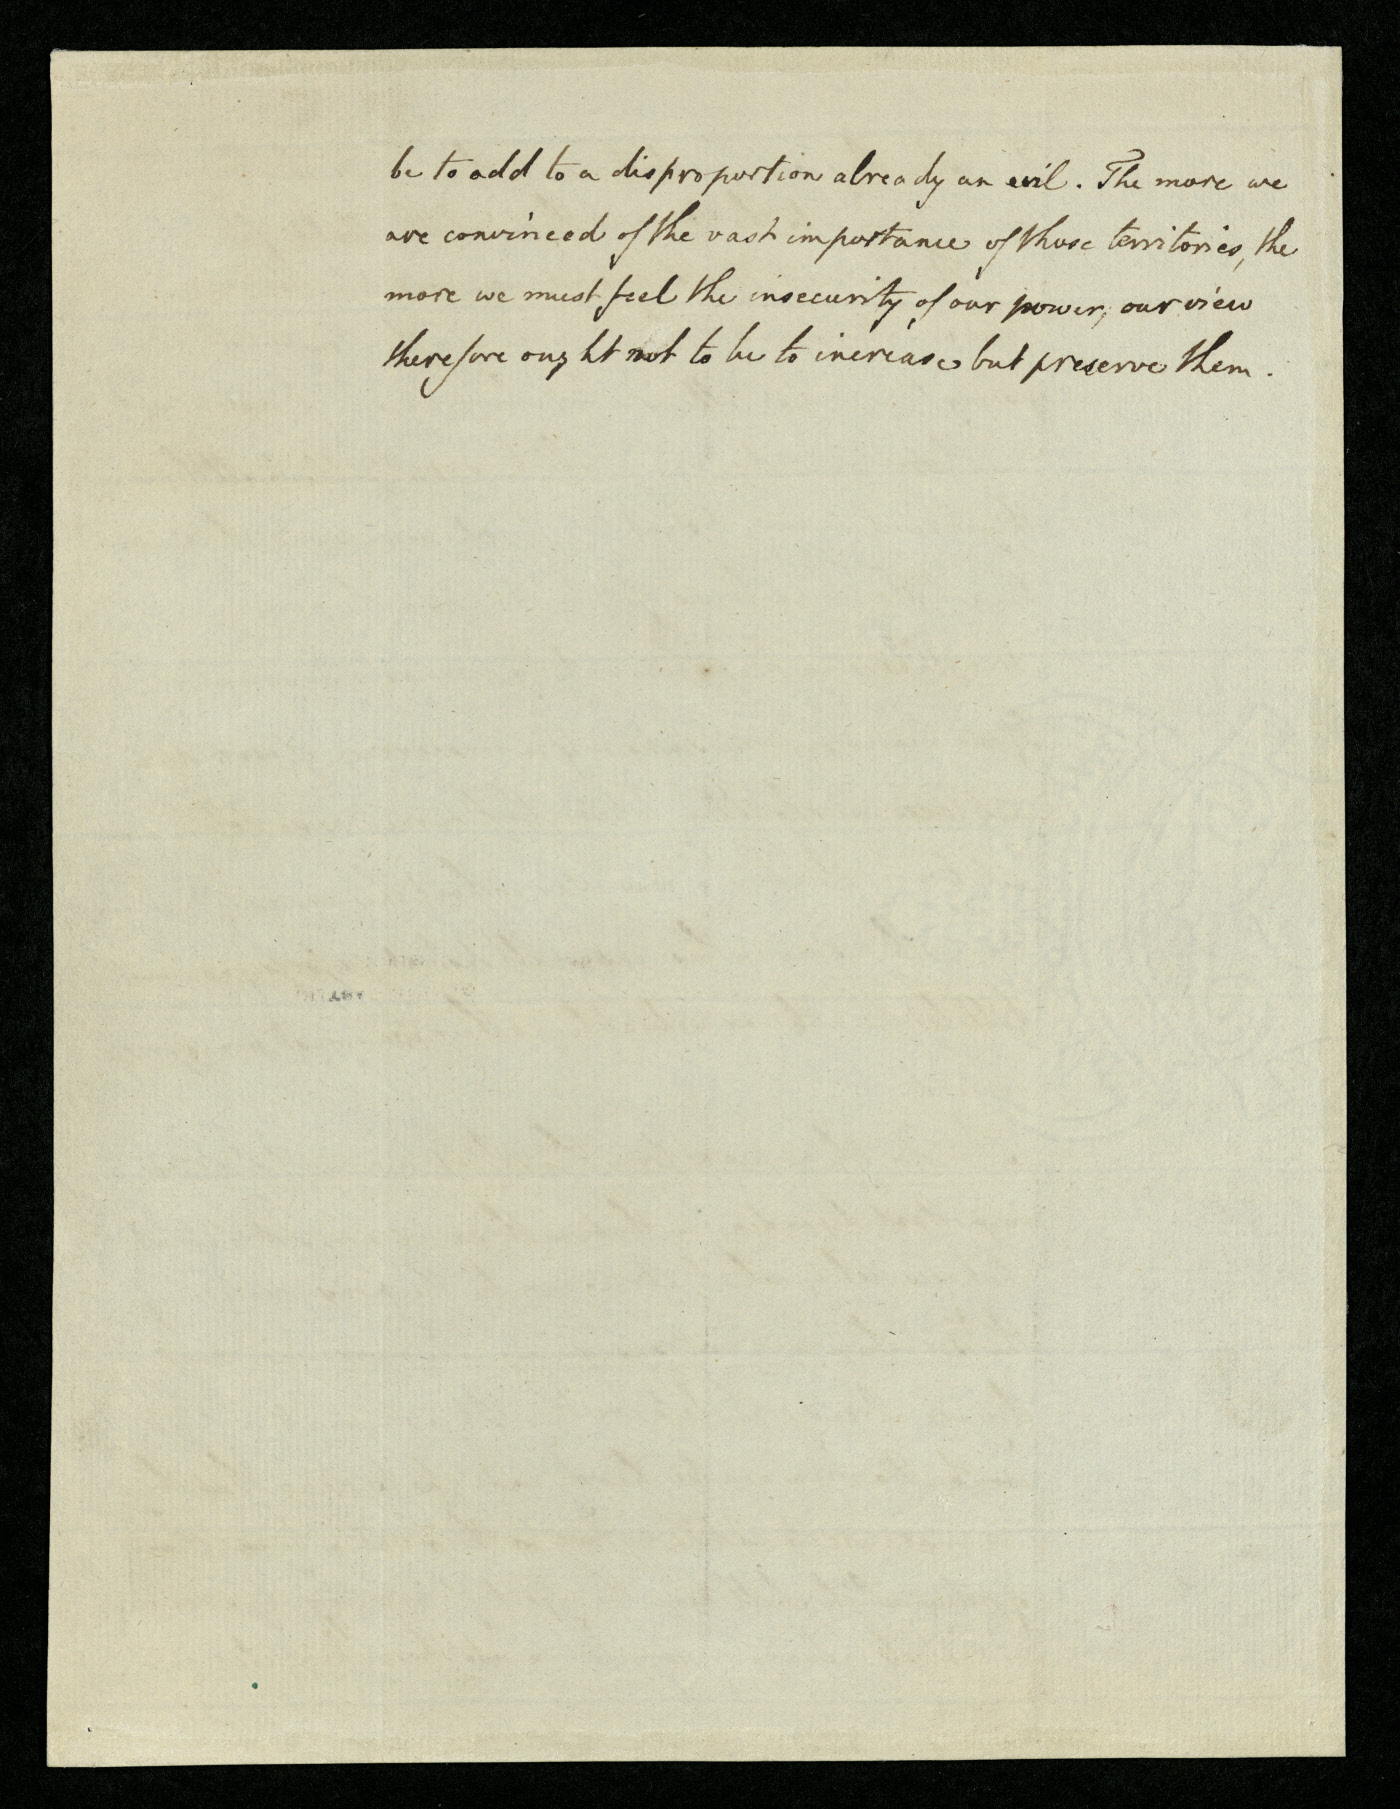 be to add to a disproportion already an evil. The more we
are convinced of the vast importance of those territories, the
more we must feel the insecurity of our power, our view
therefore ought not to be to increase but preserve them.